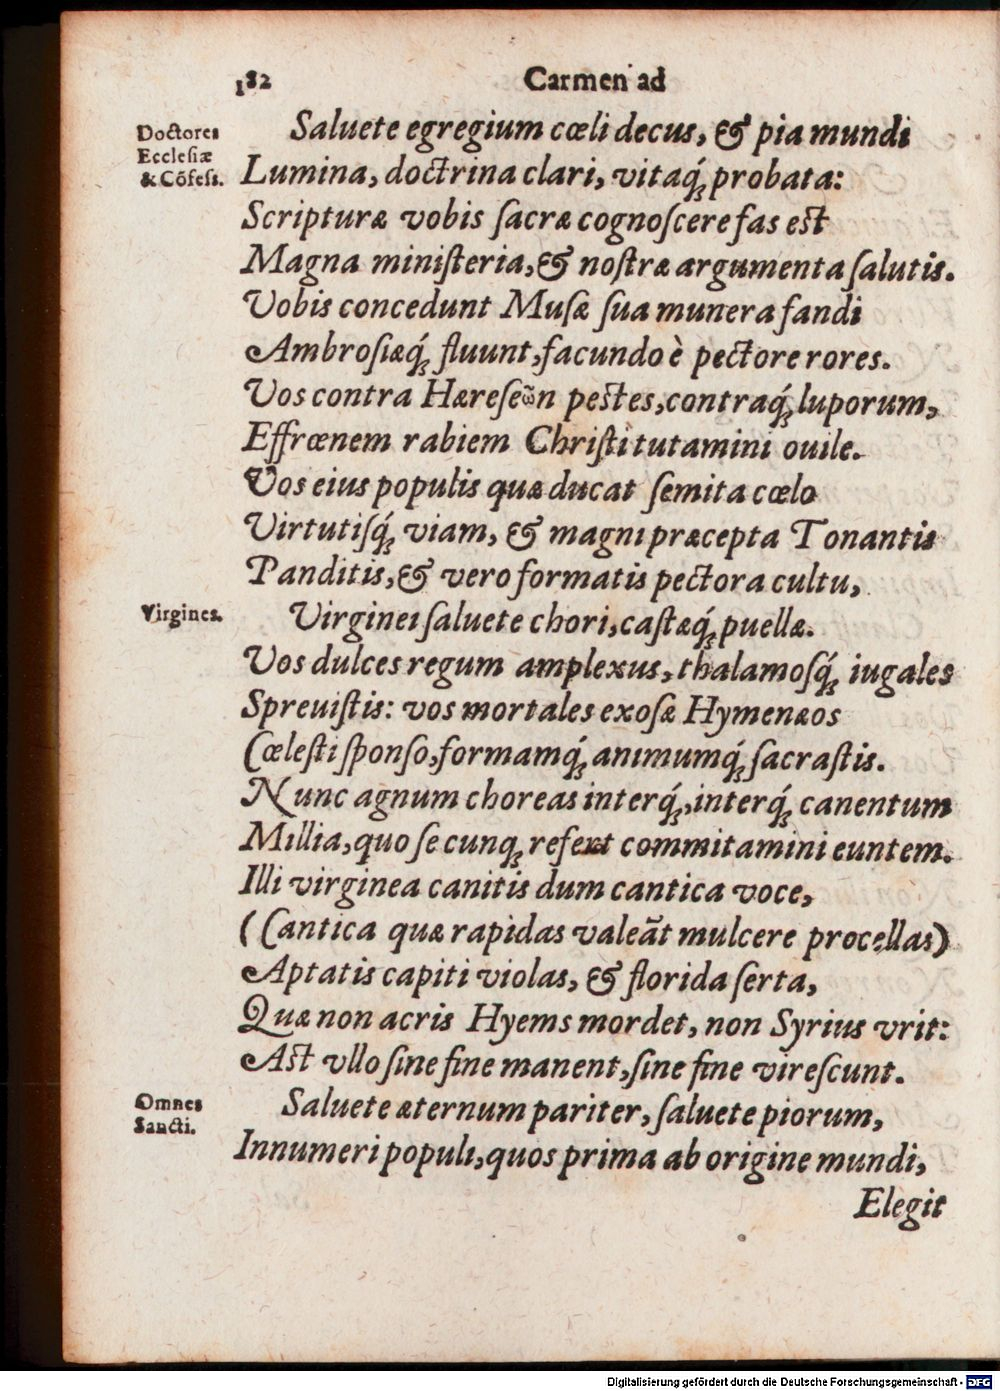 182
Carmen ad
Doctores
Ecclesiæ
& Cõfess.
Saluete egregium cœli decus, & pia mundi
Lumina, doctrina clari, vitaq́; probata:
Scripturæ vobis sacræ cognoscere fas est
Magna ministeria, & nostræ argumenta salutis.
Vobis concedunt Musæ sua munera fandi
Ambrosiæq́; fluunt, facundo è pectore rores.
Vos contra Hæreseω̃n pestes, contraq́; luporum,
Effrœnem rabiem Christi tutamini ouile.
Vos eius populis quæ ducat semita cœlo
Virtutisq́; viam, & magni præcepta Tonantis
Panditis, & vero formatis pectora cultu,
Virgines.
Virginei saluete chori, castæq́; puellæ.
Vos dulces regum amplexus, thalamosq́; iugales
Spreuistis: vos mortales exosæ Hymenæos
Cœlesti sponso, formamq́; animumq́; sacrastis.
Nunc agnum choreas interq́;, interq́; canentum
Millia, quo se cunq; refert commitamini euntem.
Illi virginea canitis dum cantica voce,
(Cantica quæ rapidas valeãt mulcere procellas)
Aptatis capiti violas, & florida serta,
Quæ non acris Hyems mordet, non Syrius vrit:
Ast vllo sine fine manent, sine fine virescunt.
Omnes
Sancti.
Saluete æternum pariter, saluete piorum,
Innumeri populi, quos prima ab origine mundi,
Elegit
Digitalisierung gefördert durch die Deutsche Forschungsgemeinschaft - DFG